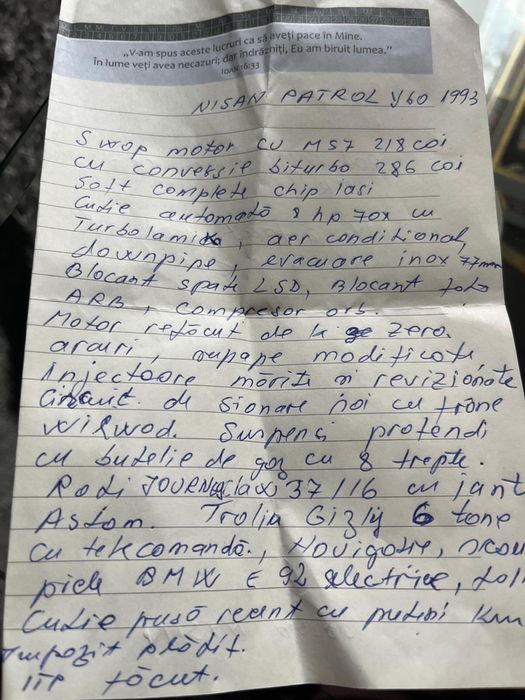 „V-am spus aceste lucruri ca să aveți pace în Mine.
În lume veți avea necazuri; dar îndrăzniți, Eu am biruit lumea.”
IOAN 16:33
NISAN PATROL Y60 1993
Swop motor cu M57 218 coi
cu conversie biturbo 286 coi
Soft complete chip Iasi
Cutie automată 8 hp 70x cu
Turbolamik, aer conditional,
downpipe, evacuare inox 77mm
Blocant spate LSD, Blocant fata
ARB, compresor arb.
Motor refăcut de la zero
arcuri, supape modificate,
Injectoare mărite si revizionate
Circuit de sionare noi cu frâne
Wilwod. Suspensi profendi
cu butelie de gaz cu 8 trepte.
Roti 37/16 cu jant
Astom. Troliu Gizly 6 tone
cu telecomandă, Navigatie, scau
piele BMW E 92 electrice,
Cutie pusă recent cu putini km
Impozit plătit.
ITP făcut.